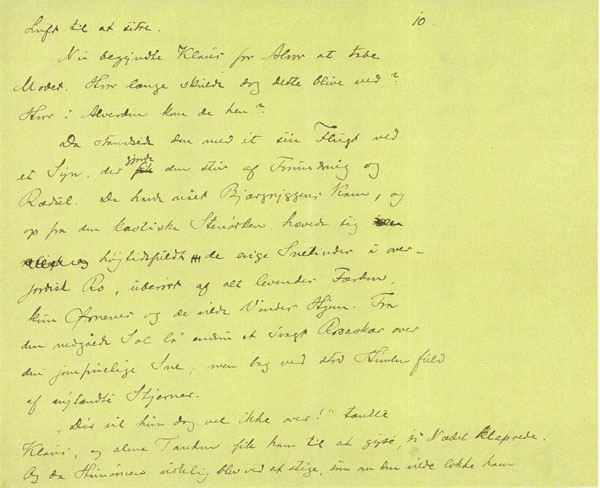 10.
Luft til at sitre.
Nu begyndte Klaus for Alvor at tabe
Modet. Hvor længe skulde dog dette blive ved?
Hvor i Alverden kom de hen?
Da standsede den med et sin Flugt ved
et Syn, der gjorde den stiv af Forundring og
Rædsel. De havde naaet Bjærgryggens Kam, og
op fra den kaotiske Stenørken hævede sig
højtidsfuldt de evige Snetinder i over-
jordisk Ro, uberørt af alt levendes Færden,
kun Ørnenes og de vilde Vindes Hjem. Fra
den nedgåede Sol lå endnu et svagt Rosaskær over
den jomfruelige Sne, men bag ved stod Himlen fuld
af nytændte Stjerner.
"Dér vil hun dog vel ikke over!" tænkte
Klaus, og alene Tanken fik ham til at gyse, så Næbet klaprede.
Og da Hunnen virkelig blev ved at stige, som om den vilde lokke ham